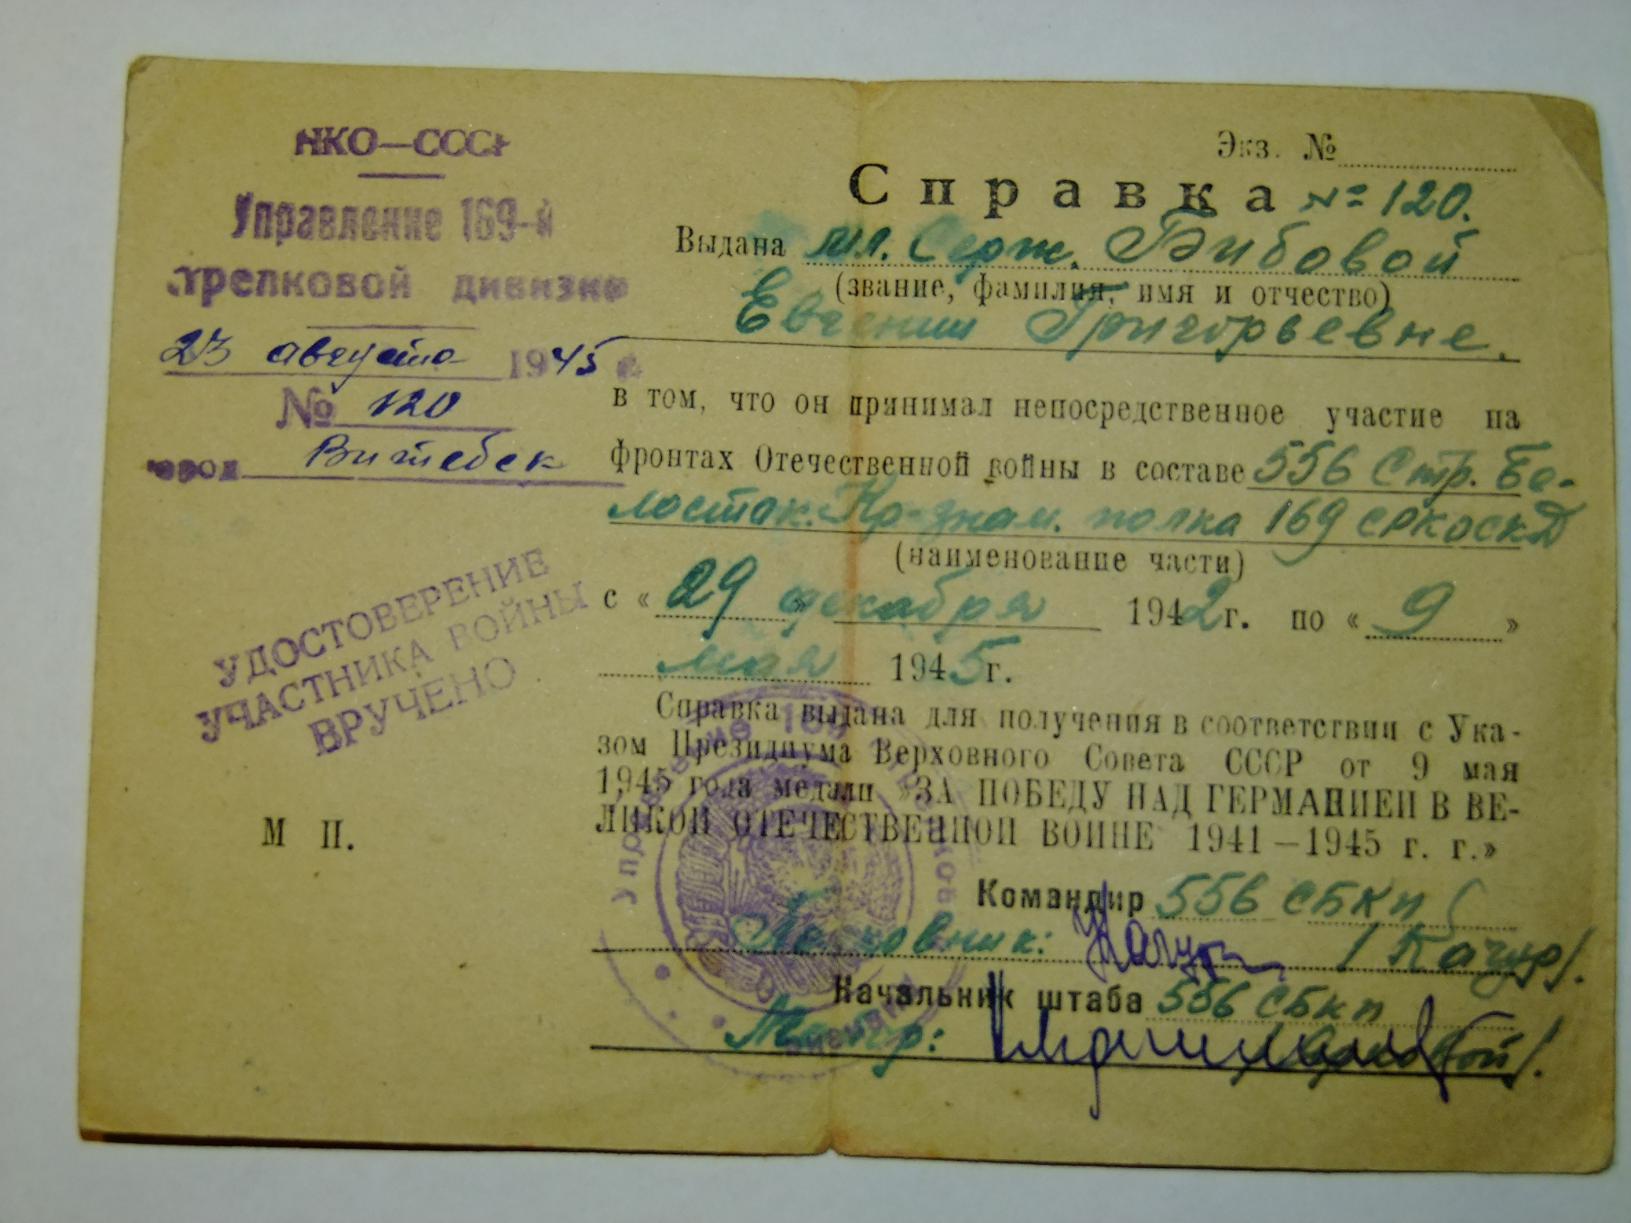 НКО—СССР
Управление 169-й
стрелковой дивизии
23 августа 1945 г.
№ 120
город Витебск
УДОСТОВЕРЕНИЕ
УЧАСТНИКА ВОЙНЫ
ВРУЧЕНО
М П.
Экз. №
Справка № 120.
Выдана мл. Серж. Бибовой
(звание, фамилия, имя и отчество)
Евгении Григорьевне.
в том, что он принимал непосредственное участие на
фронтах Отечественной войны в составе 556 Стр. Бе-
лосток. Кр-знам. полка 169 СРКОСКД
(наименование части)
с «29» декабря 1942 г. по «9»
мая 1945 г.
Справка выдана для получения в соответствии с Ука-
зом Президиума Верховного Совета СССР от 9 мая
1945 года медали »ЗА ПОБЕДУ НАД ГЕРМАНИЕЙ В ВЕ-
ЛИКОЙ ОТЕЧЕСТВЕННОЙ ВОЙНЕ 1941—1945 г. г.»
Командир 556 СБКП
Полковник: /Качур/.
Начальник штаба 556 СБКП
Майор: